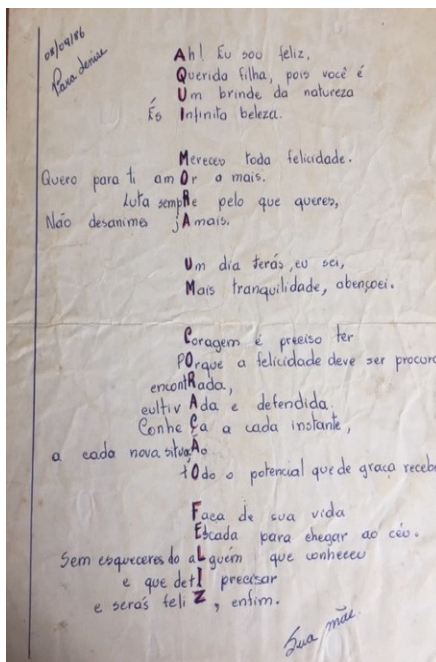 08/09/86
Para Denise
Ah! Eu sou feliz,
Querida filha, pois você é
Um brinde da natureza
És Infinita beleza.
Mereces toda felicidade.
Quero para ti amOr a mais.
Luta sempRe pelo que queres,
Não desanimes jAmais.
Um dia terás, eu sei,
Mais tranquilidade, abençoei.
Coragem é preciso ter
POrque a felicidade deve ser procura
encontRada,
cultivAda e defendida.
ConheÇa a cada instante,
a cada nova situaÇÃo
tOdo o potencial que de graça recebe
Faça de sua vida
Escada para chegar ao céu.
Sem esqueceres do aLguém que conheceu
e que de tI precisar
e serás feliZ, enfim.
Sua mãe